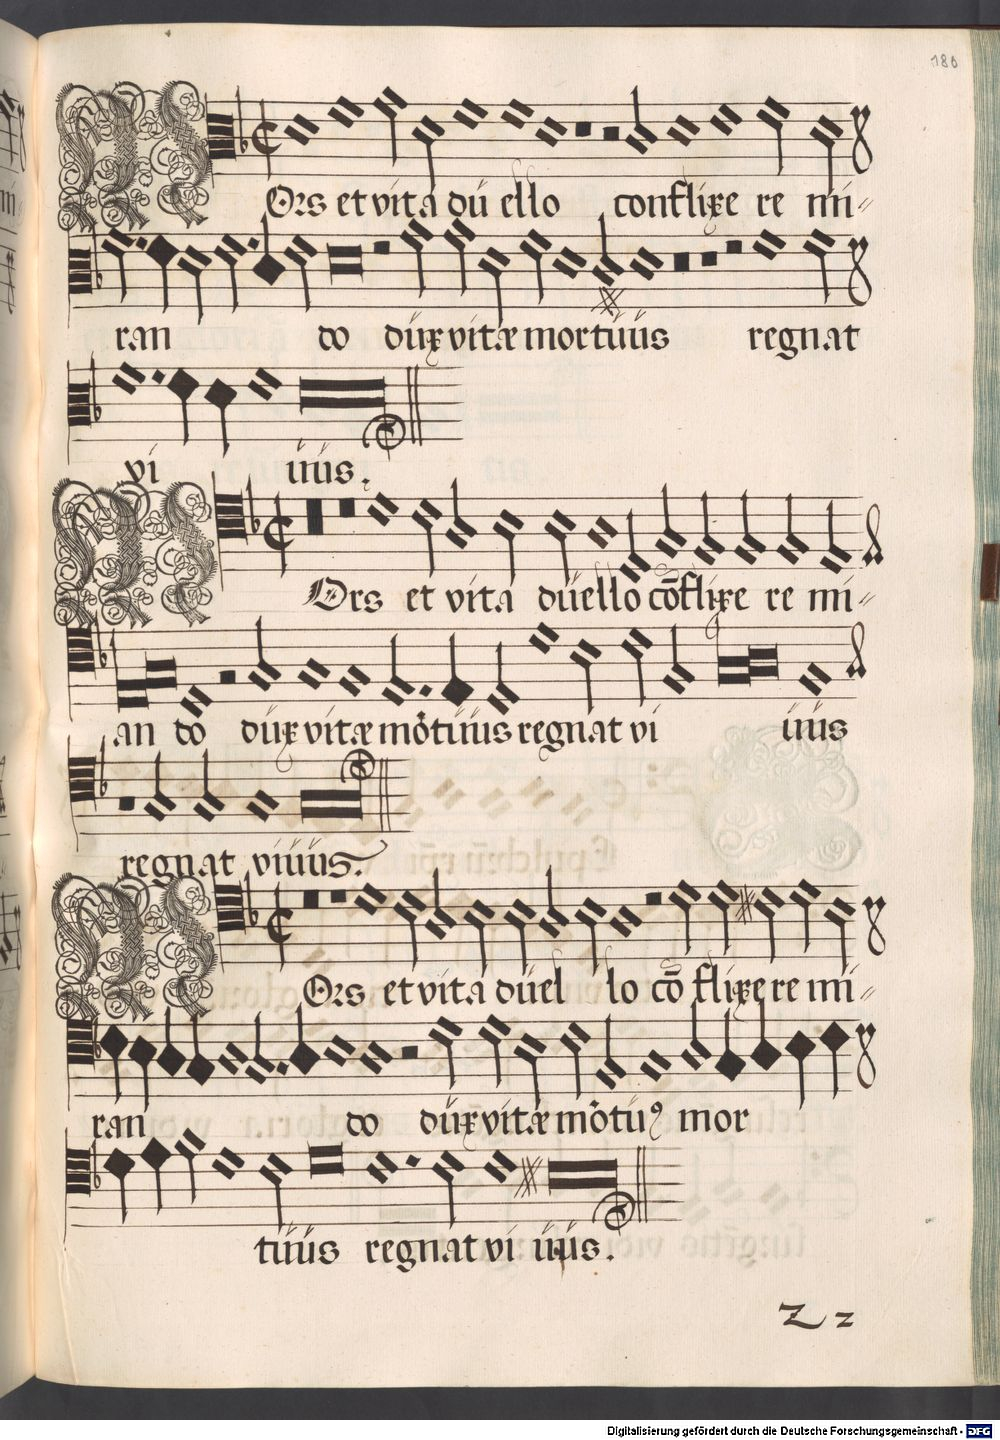 180
MOrs et vita du ello conflixe re mi-
ran do dux vitæ mortuus regnat
vi uus.
MOrs et vita duello cõflixe re mi-
an do dux vitæ mõtuus regnat vi uus
regnat viuus.
MOrs et vita duel lo cõ flixe re mi-
ran do dux vitæ mõtuꝰ mor
tuus regnat vi uus.
Z z
Digitalisierung gefördert durch die Deutsche Forschungsgemeinschaft - DFG